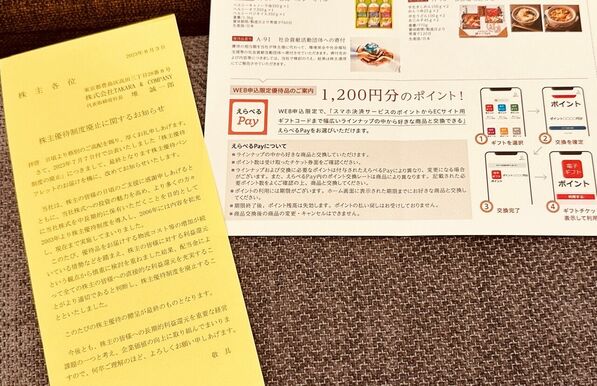 2023年8月3日
株 主 各 位
東京都豊島区高田三丁目28番8号
株式会社TAKARA & COMPANY
代表取締役社長 堆 誠一郎
株主優待制度廃止に関するお知らせ
拝啓 日頃より格別のご高配を賜り、厚くお礼申しあげます。
さて、2023年7月7日付で公表いたしました「株主優待
制度の廃止」につきまして、最終となります株主優待パン
フレットのお届けを機に、改めてお知らせいたします。
当社は、株主の皆様の日頃のご支援に感謝申しあげると
ともに、当社株式への投資の魅力を高め、より多くの方々
に当社株式を中長期的に保有いただくことを目的として、
2003年より株主優待制度を導入し、2006年に内容を拡充
し、現在まで実施してまいりました。
このたび、優待品をお届けする物流コスト等の増加が続
いている情勢などを踏まえ、株主の皆様に対する利益還元
という観点から慎重に検討を重ねました結果、配当金によ
って全ての株主の皆様への直接的な利益還元を充実するこ
とがより適切であると判断し、株主優待制度を廃止するこ
とといたしました。
このたびの株主優待の贈呈が最終のものとなります。
今後とも、株主の皆様への長期的利益還元を重要な経営
課題の一つと考え、企業価値の向上に取り組んでまいりま
すので、何卒ご理解のほど、よろしくお願い申しあげます。
敬 具
A-91 社会貢献活動団体への寄付
WEB申込限定優待品のご案内
1,200円分のポイント!
えらべる
Pay
WEB申込限定で、「スマホ決済サービスのポイントからECサイト用
ギフトコードまで幅広いラインナップの中から好きな商品と交換できる」
えらべるPayをお選びいただけます。
えらべるPayについて
●ラインナップの中から好きな商品と交換してください。
●ポイント数は受け取ったチケット券面をご確認ください。
●ラインナップおよび交換に必要なポイントは付与されたえらべるPayにより異なり、変更になる場合が
ございます。また、えらべるPayのポイント交換レートは商品により異なります。予め記載された必
要ポイント数をよくご確認の上、商品と交換してください。
●ポイントの利用には期限がございます。ホーム画面に表示された期限までにお好きな商品と交換し
てください。
●期限終了後、ポイント残高は失効します。ポイントの払い戻しはお受けしておりません。
●商品交換後の商品の変更・キャンセルはできません。
① ギフトを選択
② 交換を確定
ポイント
③ 交換完了
④ ギフトチケット
表示して利用
電子
ギフト